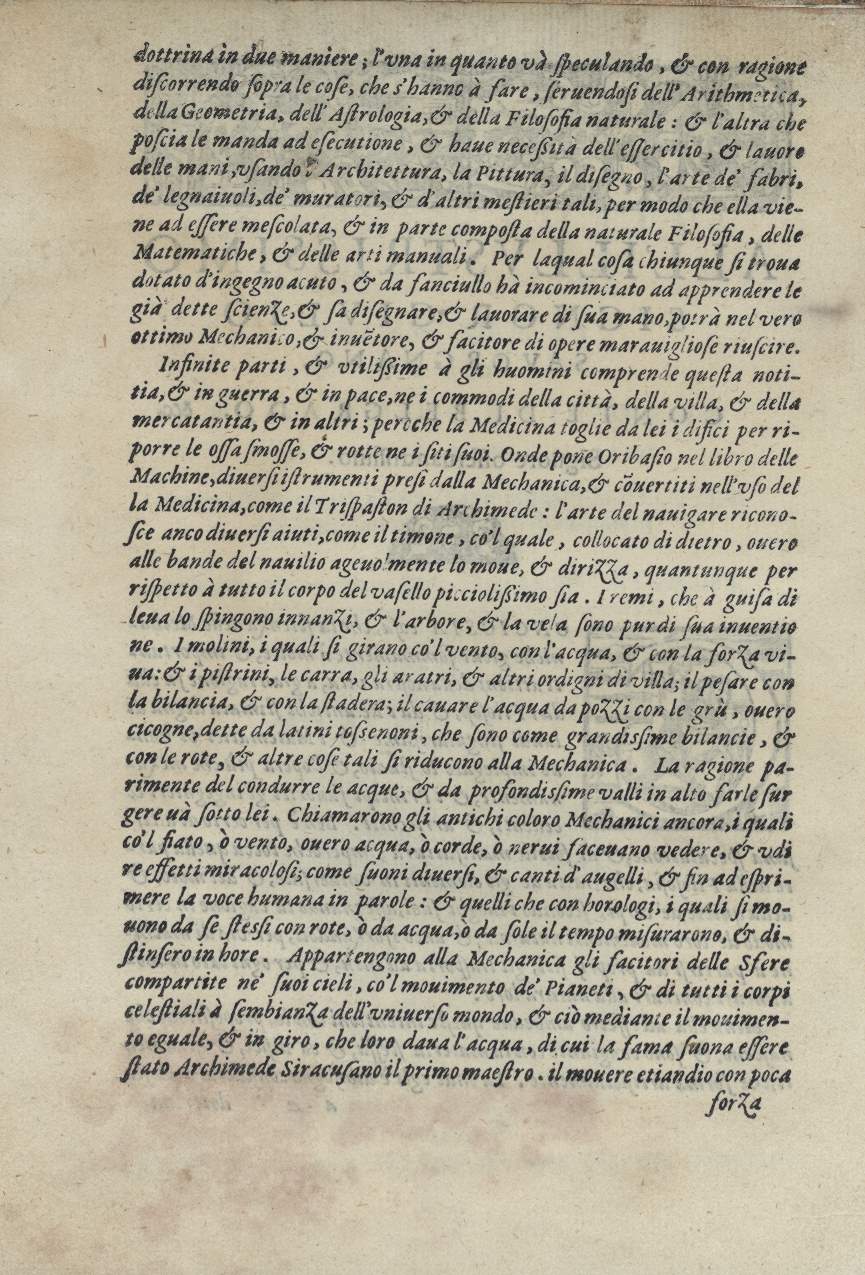 dottrina in due maniere; l'vna in quanto và ſpeculando, & con ragione
diſcorrendo ſopra le coſe, che s'hanno à fare, ſeruendoſi dell'Arithmetica,
della Geometria, dell'Aſtrologia, & della Filoſofia naturale: & l'altra che
poſcia le manda ad eſecutione, & haue neceßità dell'eſſercitio, & lauoro
delle mani, vſando l'Architettura, la Pittura, il diſegno, l'arte de' fabri,
de' legnaiuoli, de' muratori, & d'altri meſtieri tali, per modo che ella vie-
ne ad eſſere meſcolata, & in parte compoſta della naturale Filoſofia, delle
Matematiche, & delle arti manuali. Per laqual coſa chiunque ſi troua
dotato d'ingegno acuto, & da fanciullo hà incominciato ad apprendere le
già dette ſcienze, & ſa diſegnare, & lauorare di ſua mano, potrà nel vero
ottimo Mechanico, & inuētore, & facitore di opere marauiglioſe riuſcire.
Infinite parti, & vtilißime à gli huomini comprende queſta noti-
tia, & in guerra, & in pace, ne i commodi della città, della villa, & della
mercatantia, & in altri; peroche la Medicina toglie da lei i difici per ri-
porre le oſſa ſmoſſe, & rotte ne i ſiti ſuoi. Onde pone Oribaſio nel libro delle
Machine, diuerſi iſtrumenti preſi dalla Mechanica, & cõuertiti nell'vſo del
la Medicina, come il Triſpaſton di Archimede: l'arte del nauigare ricono-
ſce anco diuerſi aiuti, come il timone, co'l quale, collocato di dietro, ouero
alle bande del nauilio ageuolmente lo moue, & dirizza, quantunque per
riſpetto à tutto il corpo del vaſello picciolißimo ſia. I remi, che à guiſa di
leua lo ſpingono innanzi, & l'arbore, & la vela ſono pur di ſua inuentio
ne. I molini, i quali ſi girano co'l vento, con l'acqua, & con la forza vi-
ua: & i piſtrini, le carra, gli aratri, & altri ordigni di villa; il peſare con
la bilancia, & con la ſtadera; il cauare l'acqua da pozzi con le grù, ouero
cicogne, dette da latini toſſenoni, che ſono come grandisſime bilancie, &
con le rote, & altre coſe tali ſi riducono alla Mechanica. La ragione pa-
rimente del condurre le acque, & da profondisſime valli in alto farle ſur
gere uà ſotto lei. Chiamarono gli antichi coloro Mechanici ancora, i quali
co'l fiato, ò vento, ouero acqua, ò corde, ò nerui faceuano vedere, & vdi
re effetti miracoloſi; come ſuoni diuerſi, & canti d'augelli, & fin ad eſpri-
mere la voce humana in parole: & quelli che con horologi, i quali ſi mo-
uono da ſe ſtesſi con rote, ò da acqua, ò da ſole il tempo miſurarono, & di-
ſtinſero in hore. Appartengono alla Mechanica gli facitori delle Sfere
compartite ne' ſuoi cieli, co'l mouimento de' Pianeti, & di tutti i corpi
celeſtiali à ſembianza dell'vniuerſo mondo, & ciò mediante il mouimen-
to eguale, & in giro, che loro daua l'acqua, di cui la fama ſuona eſſere
ſtato Archimede Siracuſano il primo maeſtro. il mouere etiandio con poca
forza